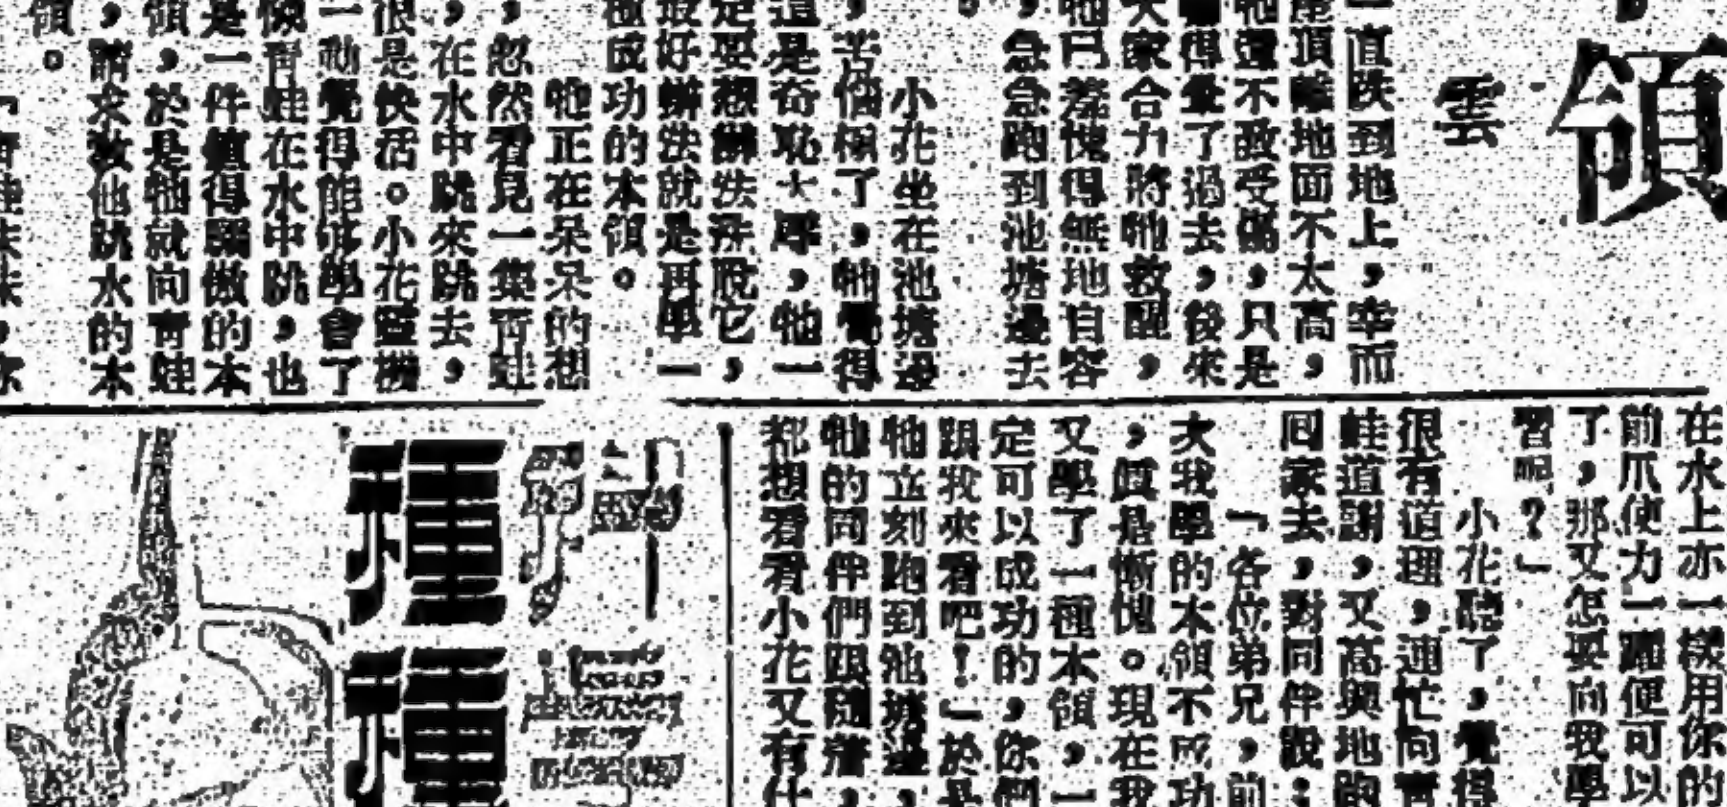 領
雲
一直跌到地上，幸而
座頂離地面不太高，
牠還不致受傷，只是
得暈了過去，後來
大家合力將牠救醒，
牠已羞愧得無地自容
，急急跑到池塘邊去
。
小花坐在池塘邊
，苦惱極了，牠覺得
這是奇恥大辱，牠一
定要想辦法洗脫它，
最好辦法就是再學一
種成功的本領。
牠正在呆呆的想
，忽然看見一隻青蛙
，在水中跳來跳去，
很是快活。小花靈機
一動覺得能夠學會了
像青蛙在水中跳，也
是一件值得驕傲的本
領，於是牠就向青蛙
，請求教他跳水的本
領。
「青蛙妹妹，你
在水上亦一樣用你的
前爪使力一躍便可以
了，那又怎要向我學
習呢？」
小花聽了，覺得
很有道理，連忙向青
蛙道謝，又高興地跑
回家去，對同伴說：
「各位弟兄，前
次我學的本領不成功
，真是慚愧。現在我
又學了一種本領，一
定可以成功的，你們
跟我來看吧！」於是
牠立刻跑到池塘邊，
牠的同伴們跟隨着，
都想看看小花又有什
種種